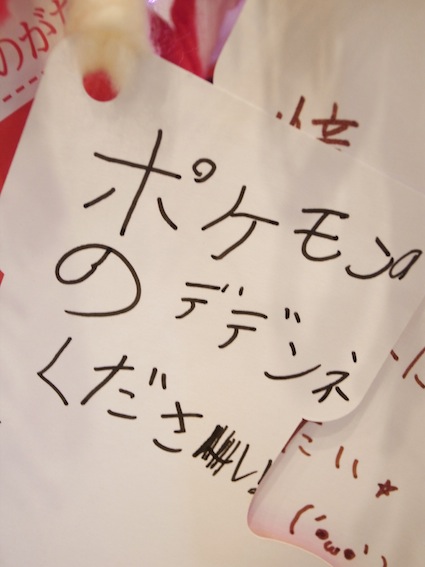 のが
ポケモンの
の デデンネ
ください!
たい☆
(´•ω•`)